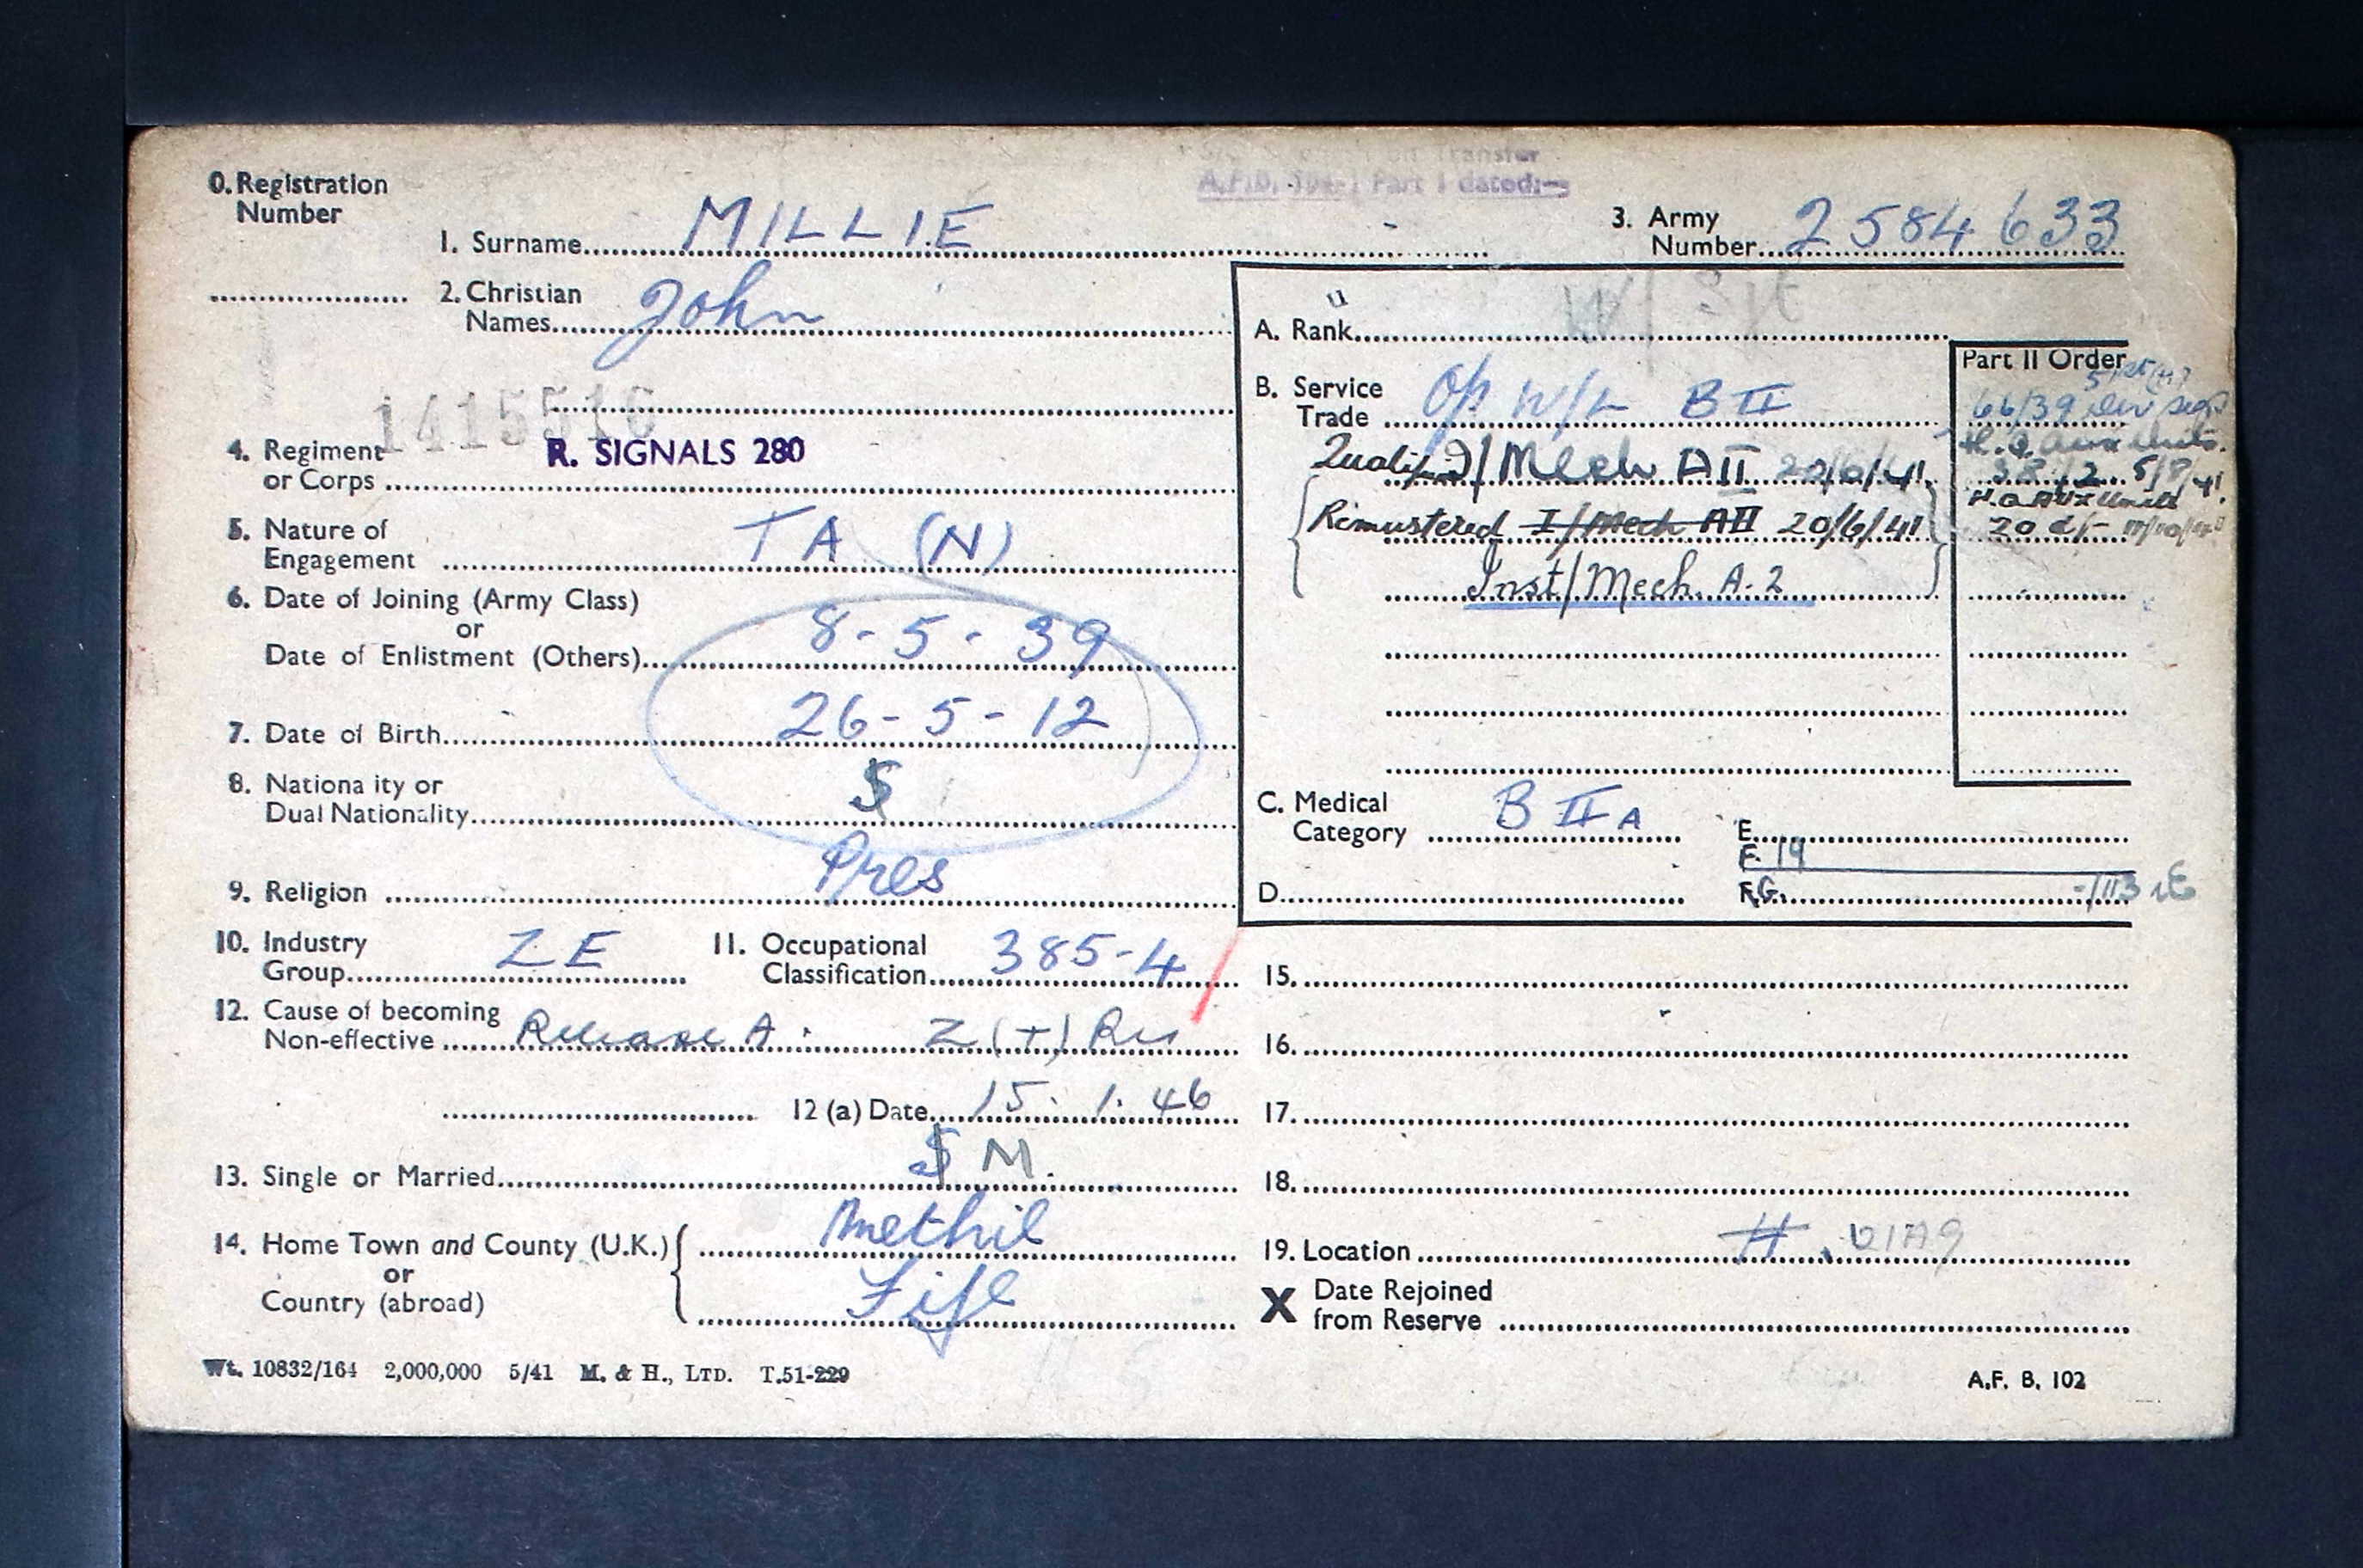 Transfer
Part I dated:-
0. Registration
Number
1. Surname MILLIE
3. Army
Number 2584633
2. Christian
Names John
A. Rank W/Sjt
Part II Order
B. Service
Trade Op W/L BII
66/39 Div Sigs
1415516
4. Regiment
or Corps
R. SIGNALS 280
Qualified I/Mech AII 20/6/41
H.Q. Aux Units.
38/2 5/9/41
Remustered I/Mech AII 20/6/41
H.Q Aux Units
5. Nature of
Engagement TA (N)
Inst/Mech. A.2
6. Date of Joining (Army Class)
or
Date of Enlistment (Others) 8-5-39
7. Date of Birth 26-5-12
8. Nationa ity or
Dual Nationality S
C. Medical
Category BIIA
E.
F. 19
9. Religion Pres
D.
G.
10. Industry
Group ZE
11. Occupational
Classification 385-4
15.
12. Cause of becoming
Non-effective Release A. Z(T) Res
16.
12 (a) Date 15.1.46
17.
13. Single or Married S M.
18.
14. Home Town and County (U.K.)
or
Country (abroad)
Methil
Fife
19. Location H
X Date Rejoined
from Reserve
Wt. 10832/164 2,000,000 5/41 M. & H., LTD. T.51-229
A.F. B. 102